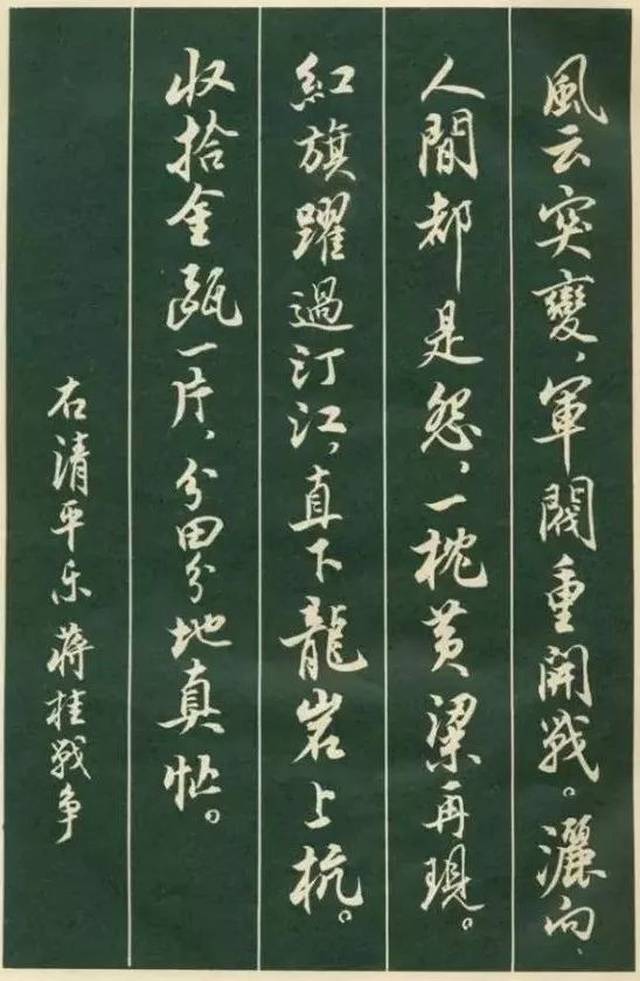 風云突變，軍閥重開戰。灑向
人間都是怨，一枕黄粱再現。
紅旗躍過汀江，直下龍岩上杭。
收拾金甌一片，分田分地真忙。
右清平乐蔣桂战争